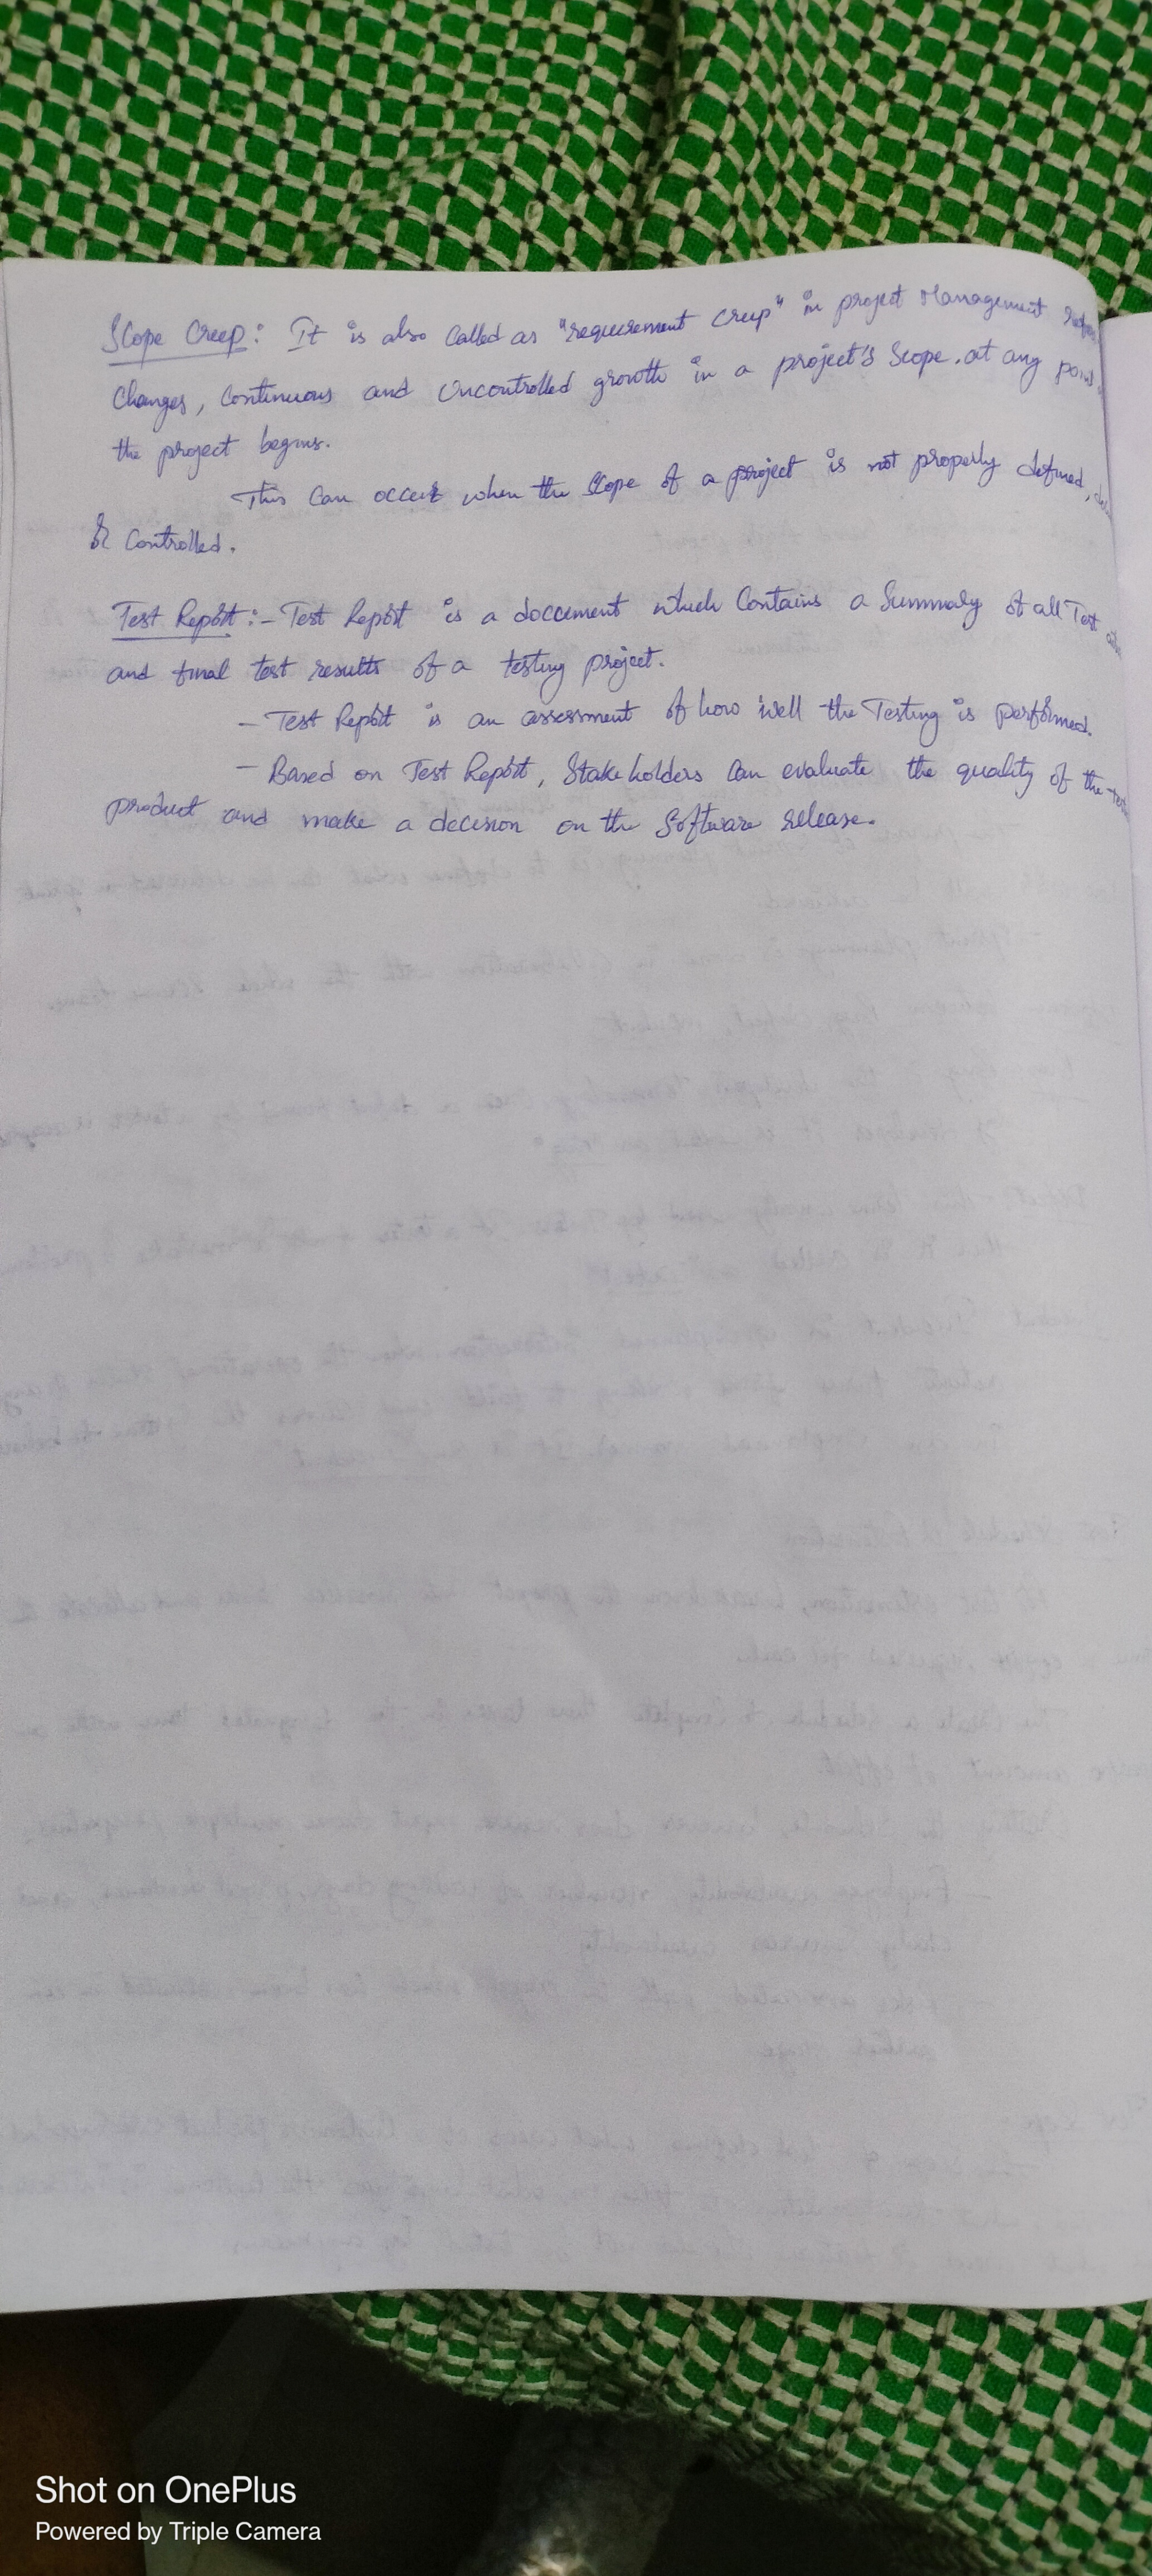 Scope Creep: It is also Called as "requirement Creep" in project Management
Changes, Continuous and Uncontrolled growth in a project's Scope. at any point
the project begins.
This Can occur when the Scope of a project is not properly defined,
or Controlled.
Test Report:- Test Report is a document which Contains a Summary of all Test
and final test results of a testing project.
- Test Report is an assessment of how well the Testing is performed.
- Based on Test Report, Stakeholders Can evaluate the quality of the
product and make a decision on the Software release.
Shot on OnePlus
Powered by Triple Camera